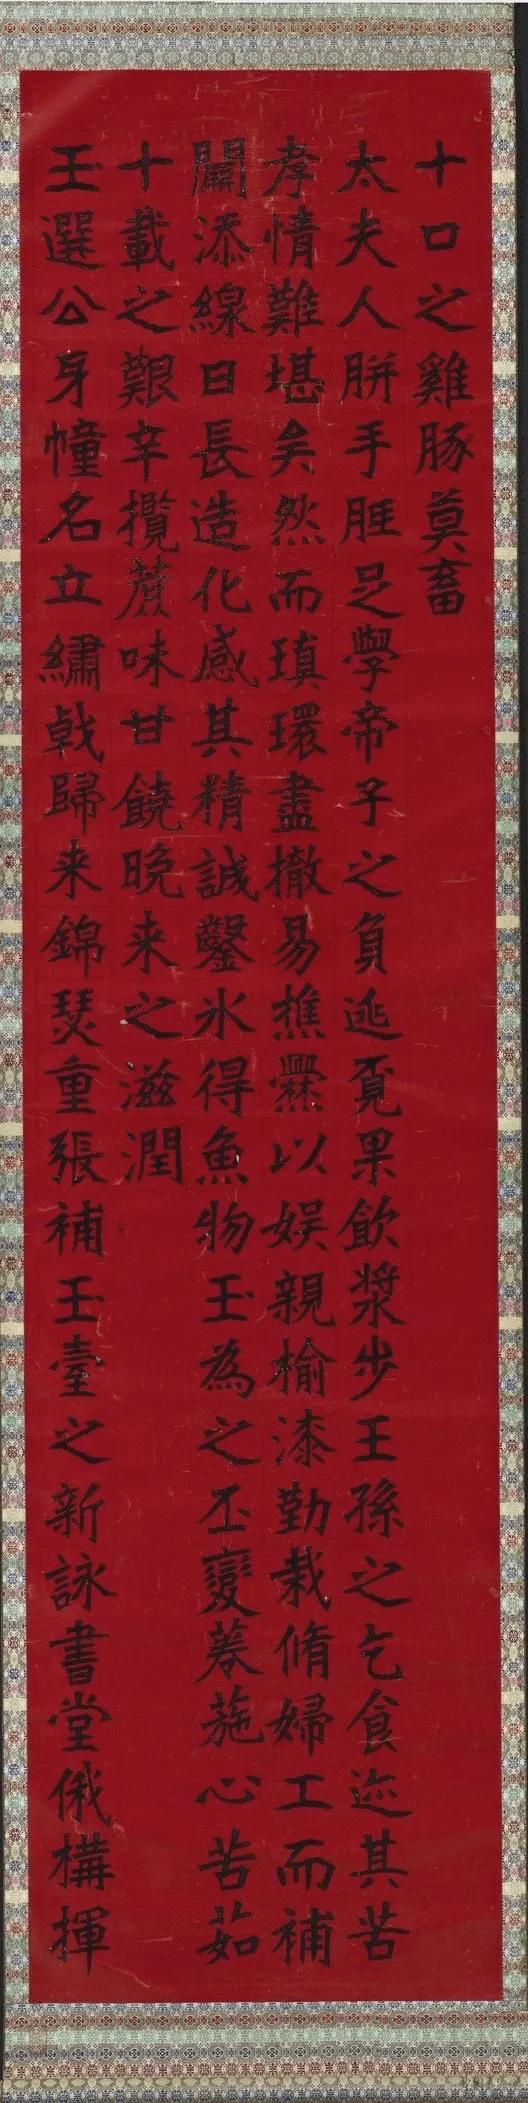 十口之雞豚莫畜
太夫人胼手胝足學帝子之負逃覓果飲漿步王孫之乞食迹其苦
孝情難堪矣然而瑱環盡撤易樵爨以娛親榆漆勤栽脩婦工而補
闕添線日長造化感其精誠鑿氷得魚物玉為之丕變葠葹心苦茹
十載之艱辛攬蔗味甘饒晚来之滋潤
玉選公身幢名立繡戟歸来錦瑟重張補玉臺之新詠書堂俄構揮